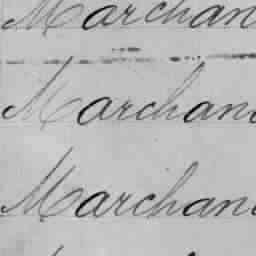 Marchan
Marchand
Marchand